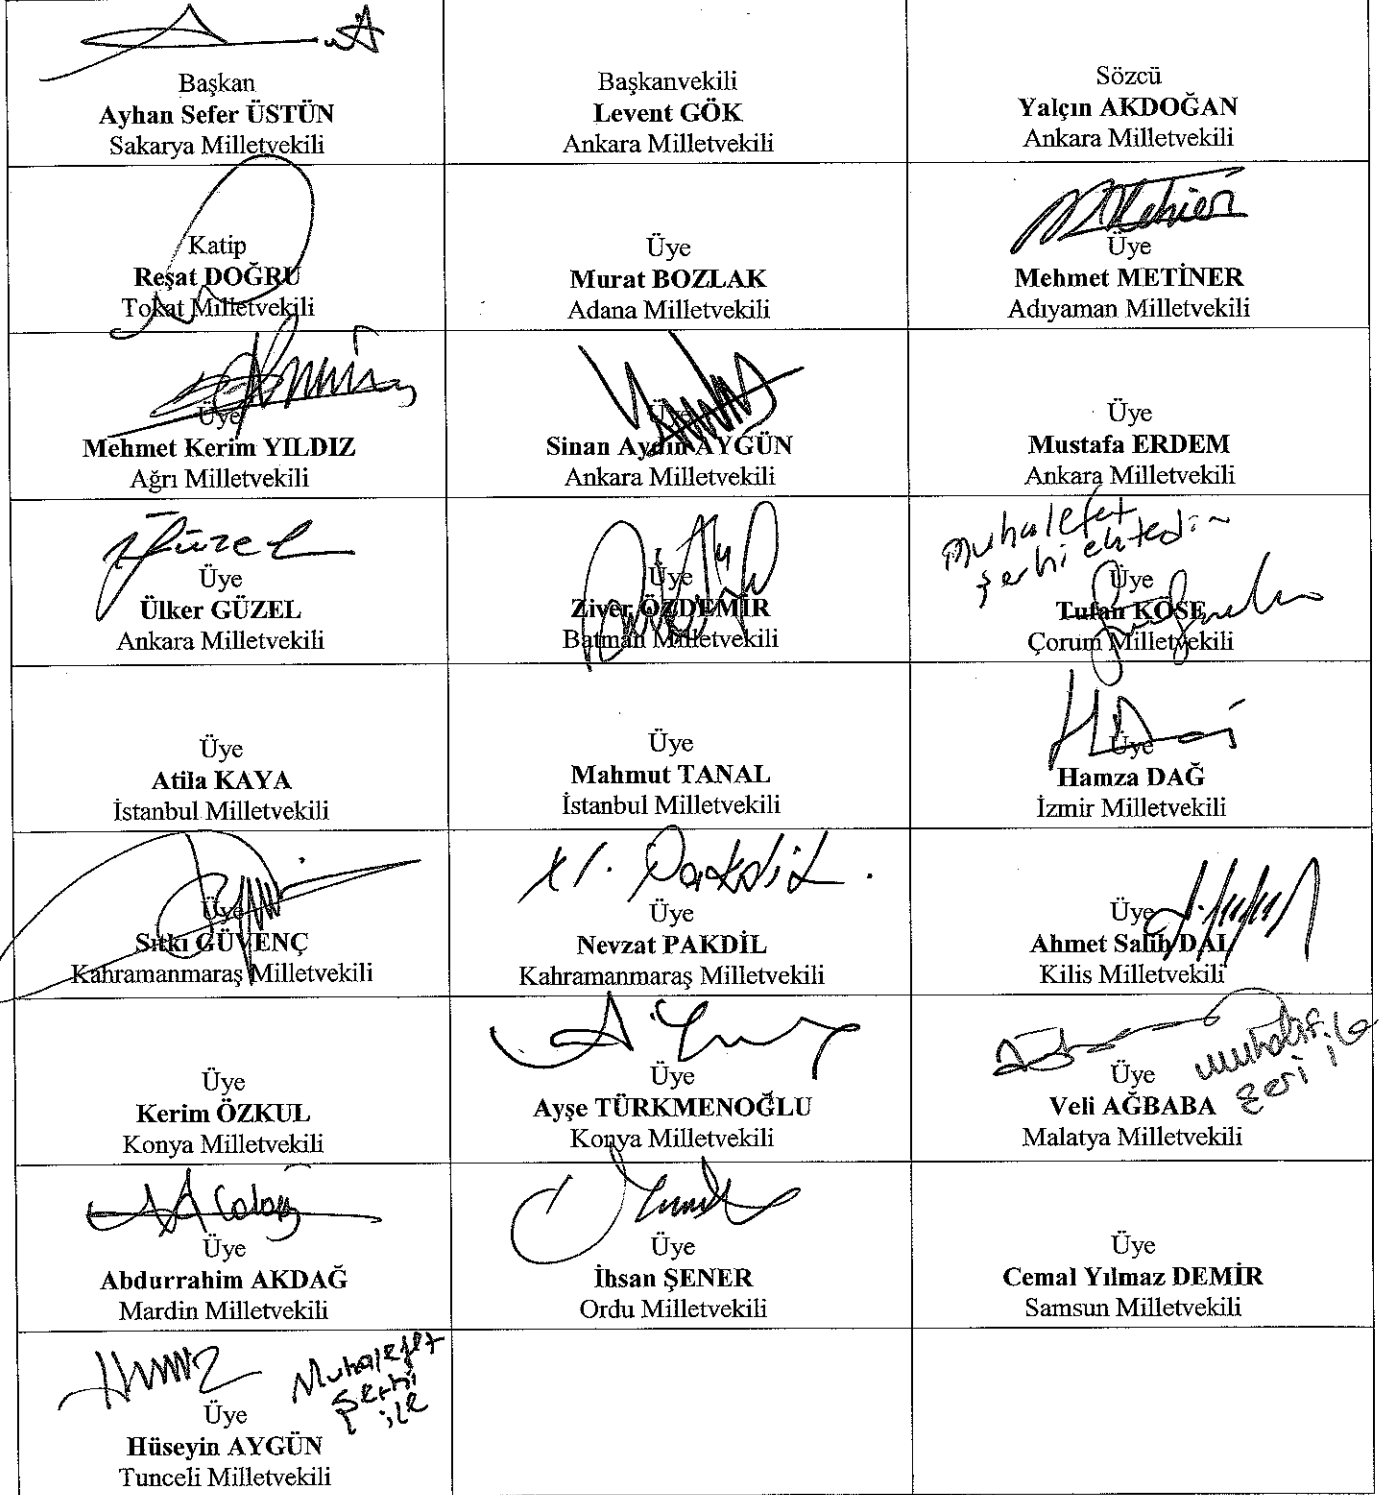 Başkan
Ayhan Sefer ÜSTÜN
Sakarya Milletvekili
Başkanvekili
Levent GÖK
Ankara Milletvekili
Sözcü
Yalçın AKDOĞAN
Ankara Milletvekili
Katip
Reşat DOĞRU
Tokat Milletvekili
Üye
Murat BOZLAK
Adana Milletvekili
Üye
Mehmet METİNER
Adıyaman Milletvekili
Üye
Mehmet Kerim YILDIZ
Ağrı Milletvekili
Üye
Sinan Aydın AYGÜN
Ankara Milletvekili
Üye
Mustafa ERDEM
Ankara Milletvekili
Üye
Ülker GÜZEL
Ankara Milletvekili
Üye
Ziver ÖZDEMİR
Batman Milletvekili
Muhalefet
şerhi ektedir
Üye
Tufan KÖSE
Çorum Milletvekili
Üye
Atila KAYA
İstanbul Milletvekili
Üye
Mahmut TANAL
İstanbul Milletvekili
Üye
Hamza DAĞ
İzmir Milletvekili
Üye
Sıtkı GÜVENÇ
Kahramanmaraş Milletvekili
N. Pakdil.
Üye
Nevzat PAKDİL
Kahramanmaraş Milletvekili
Üye
Ahmet Salih DAL
Kilis Milletvekili
Üye
Kerim ÖZKUL
Konya Milletvekili
Üye
Ayşe TÜRKMENOĞLU
Konya Milletvekili
Üye
Veli AĞBABA
Malatya Milletvekili
Üye
Abdurrahim AKDAĞ
Mardin Milletvekili
Üye
İhsan ŞENER
Ordu Milletvekili
Üye
Cemal Yılmaz DEMİR
Samsun Milletvekili
Muhalefet
Şerhi
ile
Üye
Hüseyin AYGÜN
Tunceli Milletvekili